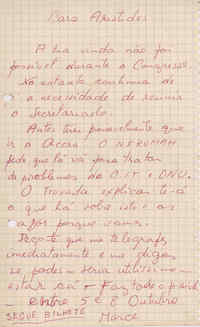 Caro Aristides
A tua vinda não foi
possível durante o Congresso.
No entanto continua de
a necessidade de reunir
o Secretariado.
Antes tens provavelmente que
ir a Accra. O NKRUMAH
pede que lá vá para tratar
de problemas do O.I.T. e ONU.
O Trovoada explicar-te-á
o que há sobre isto e as
razões porque vamos.
Peço-te que me telegrafes
imediatamente e me digas
se podes seria utilíssimo
estar cá
entre 5 e 8 Outubro
SEGUE BILHETE